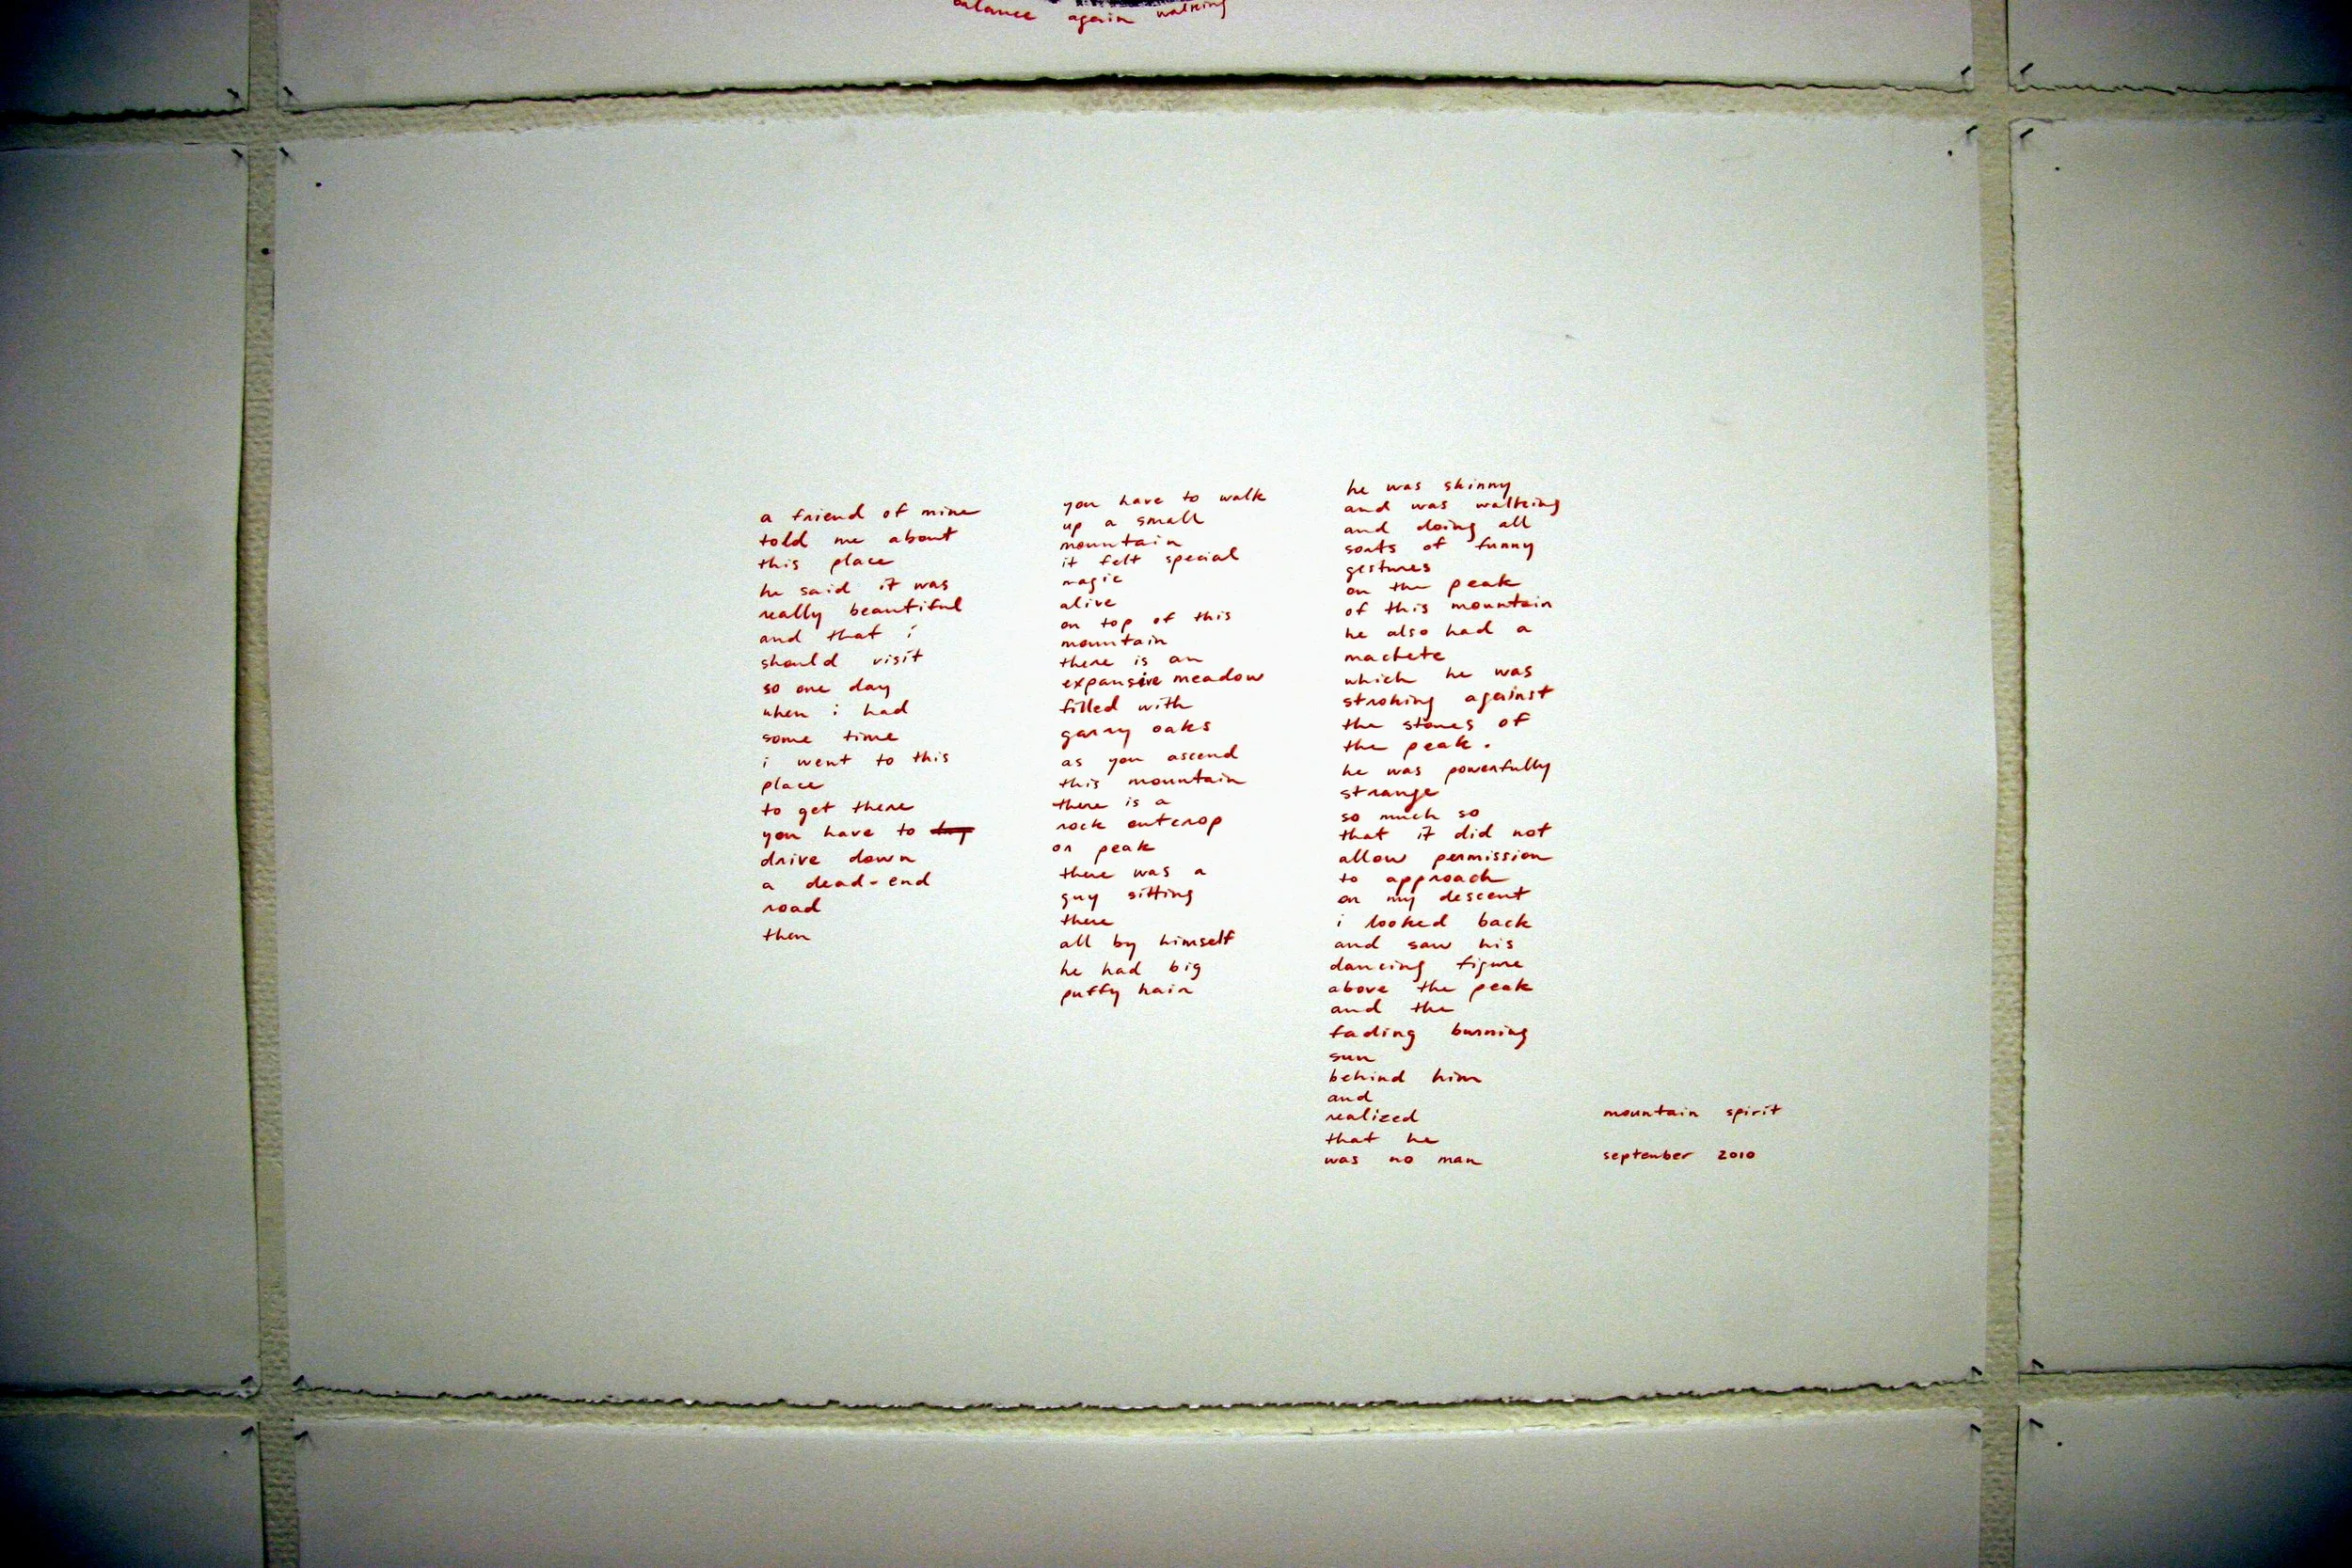 balance again walking
a friend of mine
told me about
this place
he said it was
really beautiful
and that i
should visit
so one day
when i had
some time
i went to this
place
to get there
you have to
drive down
a dead-end
road
then
you have to walk
up a small
mountain
it felt special
magic
alive
on top of this
mountain
there is an
expansive meadow
filled with
garry oaks
as you ascend
this mountain
there is a
rock outcrop
or peak
there was a
guy sitting
there
all by himself
he had big
puffy hair
he was skinny
and was walking
and doing all
sorts of funny
gestures
on the peak
of this mountain
he also had a
machete
which he was
stroking against
the stones of
the peak.
he was powerfully
strange
so much so
that it did not
allow permission
to approach
on my descent
i looked back
and saw his
dancing figure
above the peak
and the
fading burning
sun
behind him
and
realized
that he
was no man
mountain spirit
september 2010